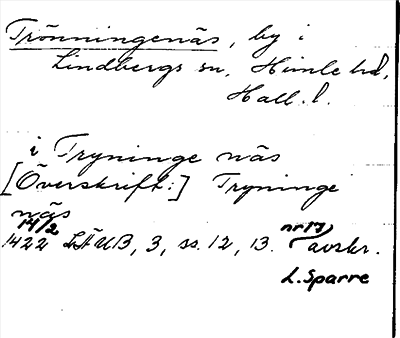 Trönningenäs, by i
Lindbergs sn, Himle hd,
Hall. l.
i Tryninge näs
[Överskrift:] Tryninge
näs
14/2
1422 LÄUB, 3, ss. 12, 13. nr 17) avskr.
L. Sparre